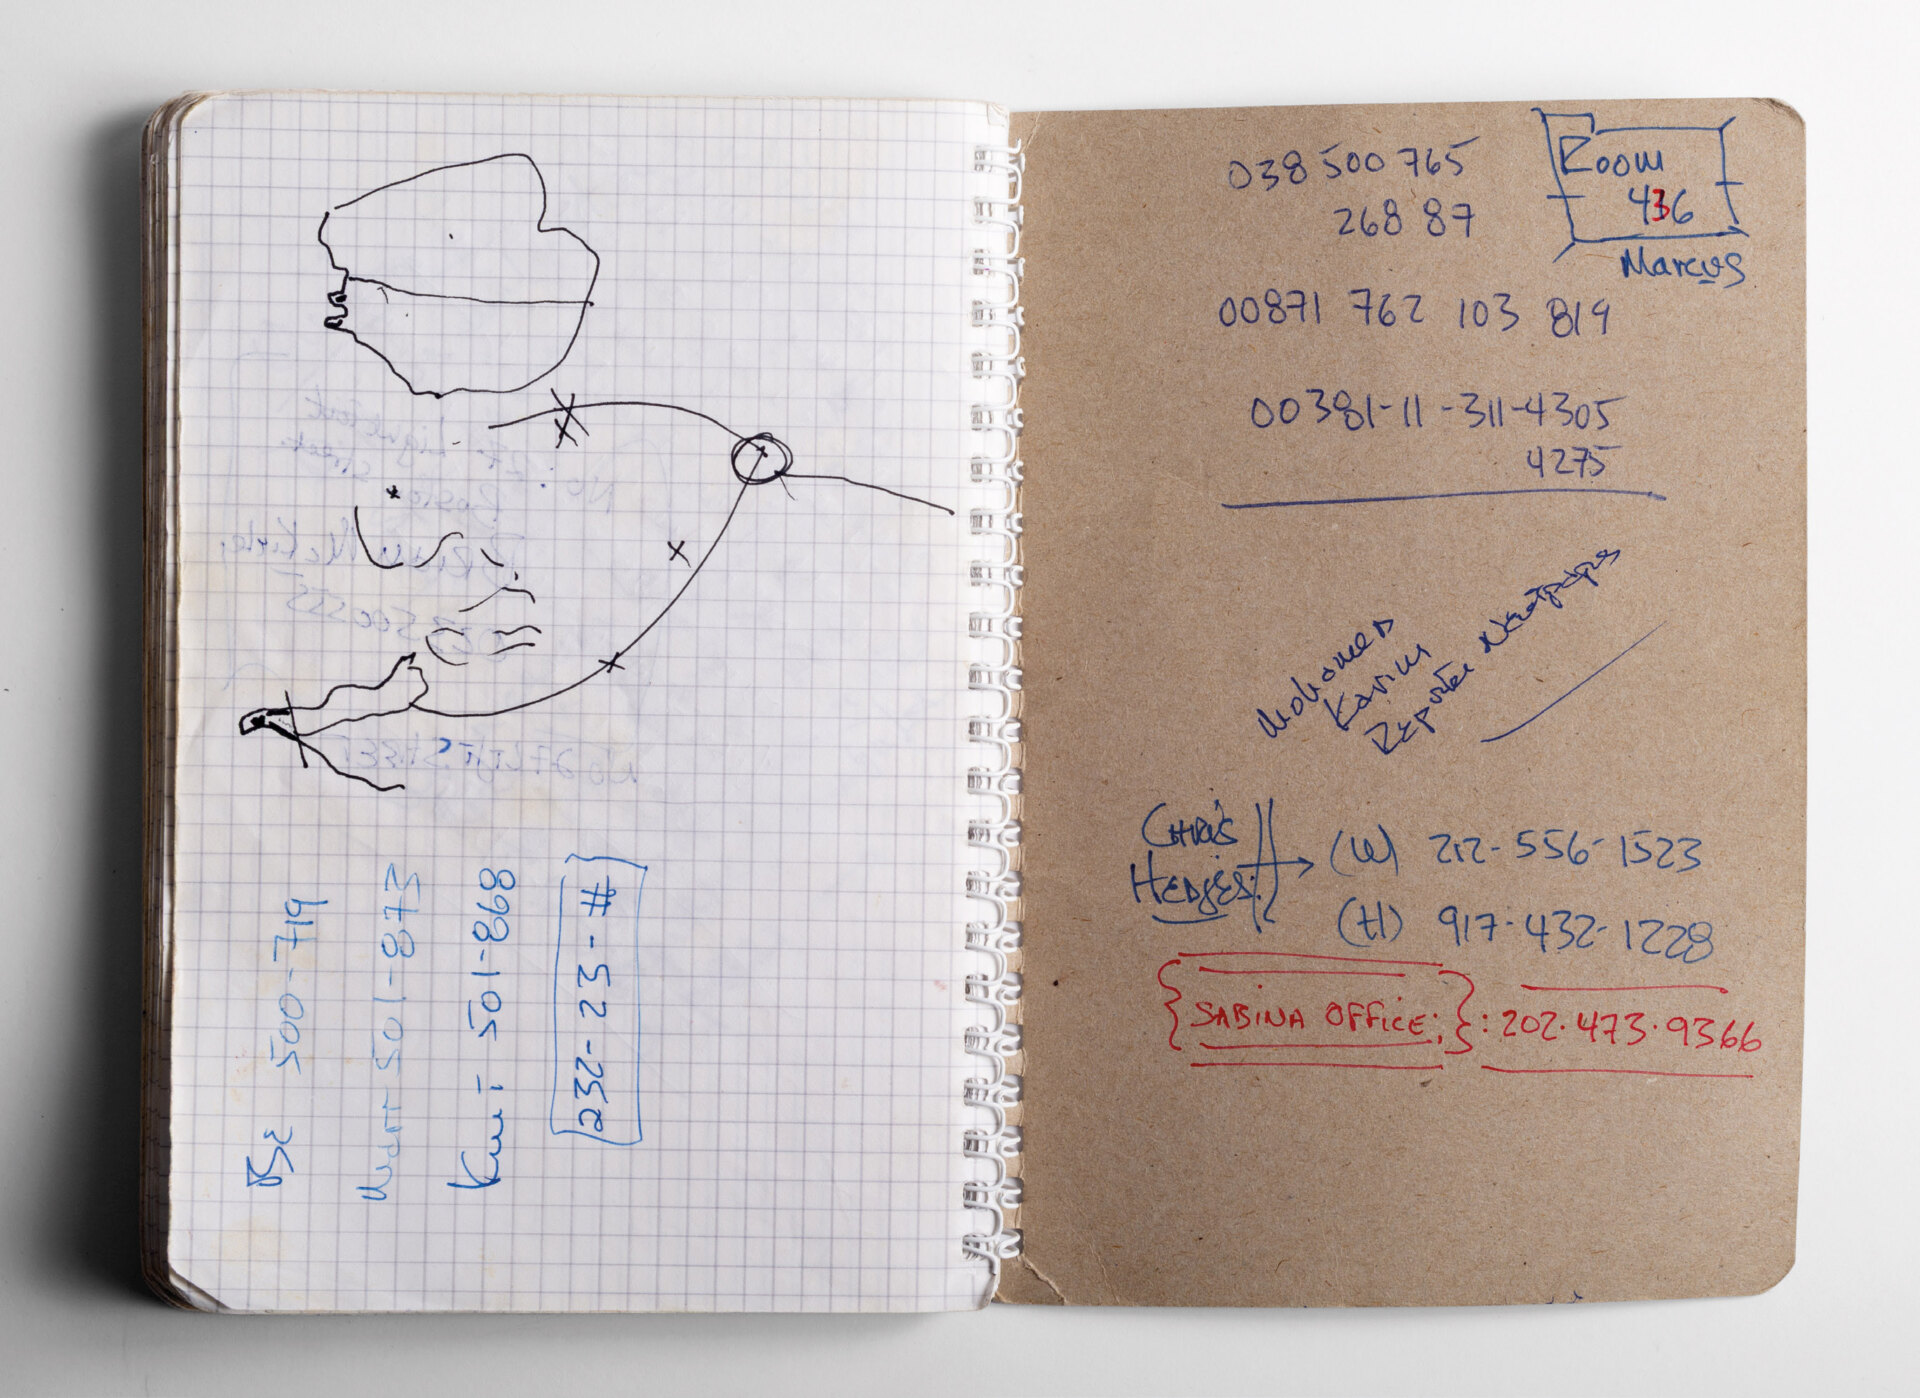 BSE 500-719
Matt 501-873
Kim: 501-868
232-23-#
038 500 765
268 87
Room
436
Marcus
00871 762 103 819
00381-11-311-4305
4275
Mohomed
Karim
Reporter
CHRIS
HEDGES:
(W) 212-556-1523
(H) 917-432-1228
{SABINA OFFICE:}: 202.473.9366